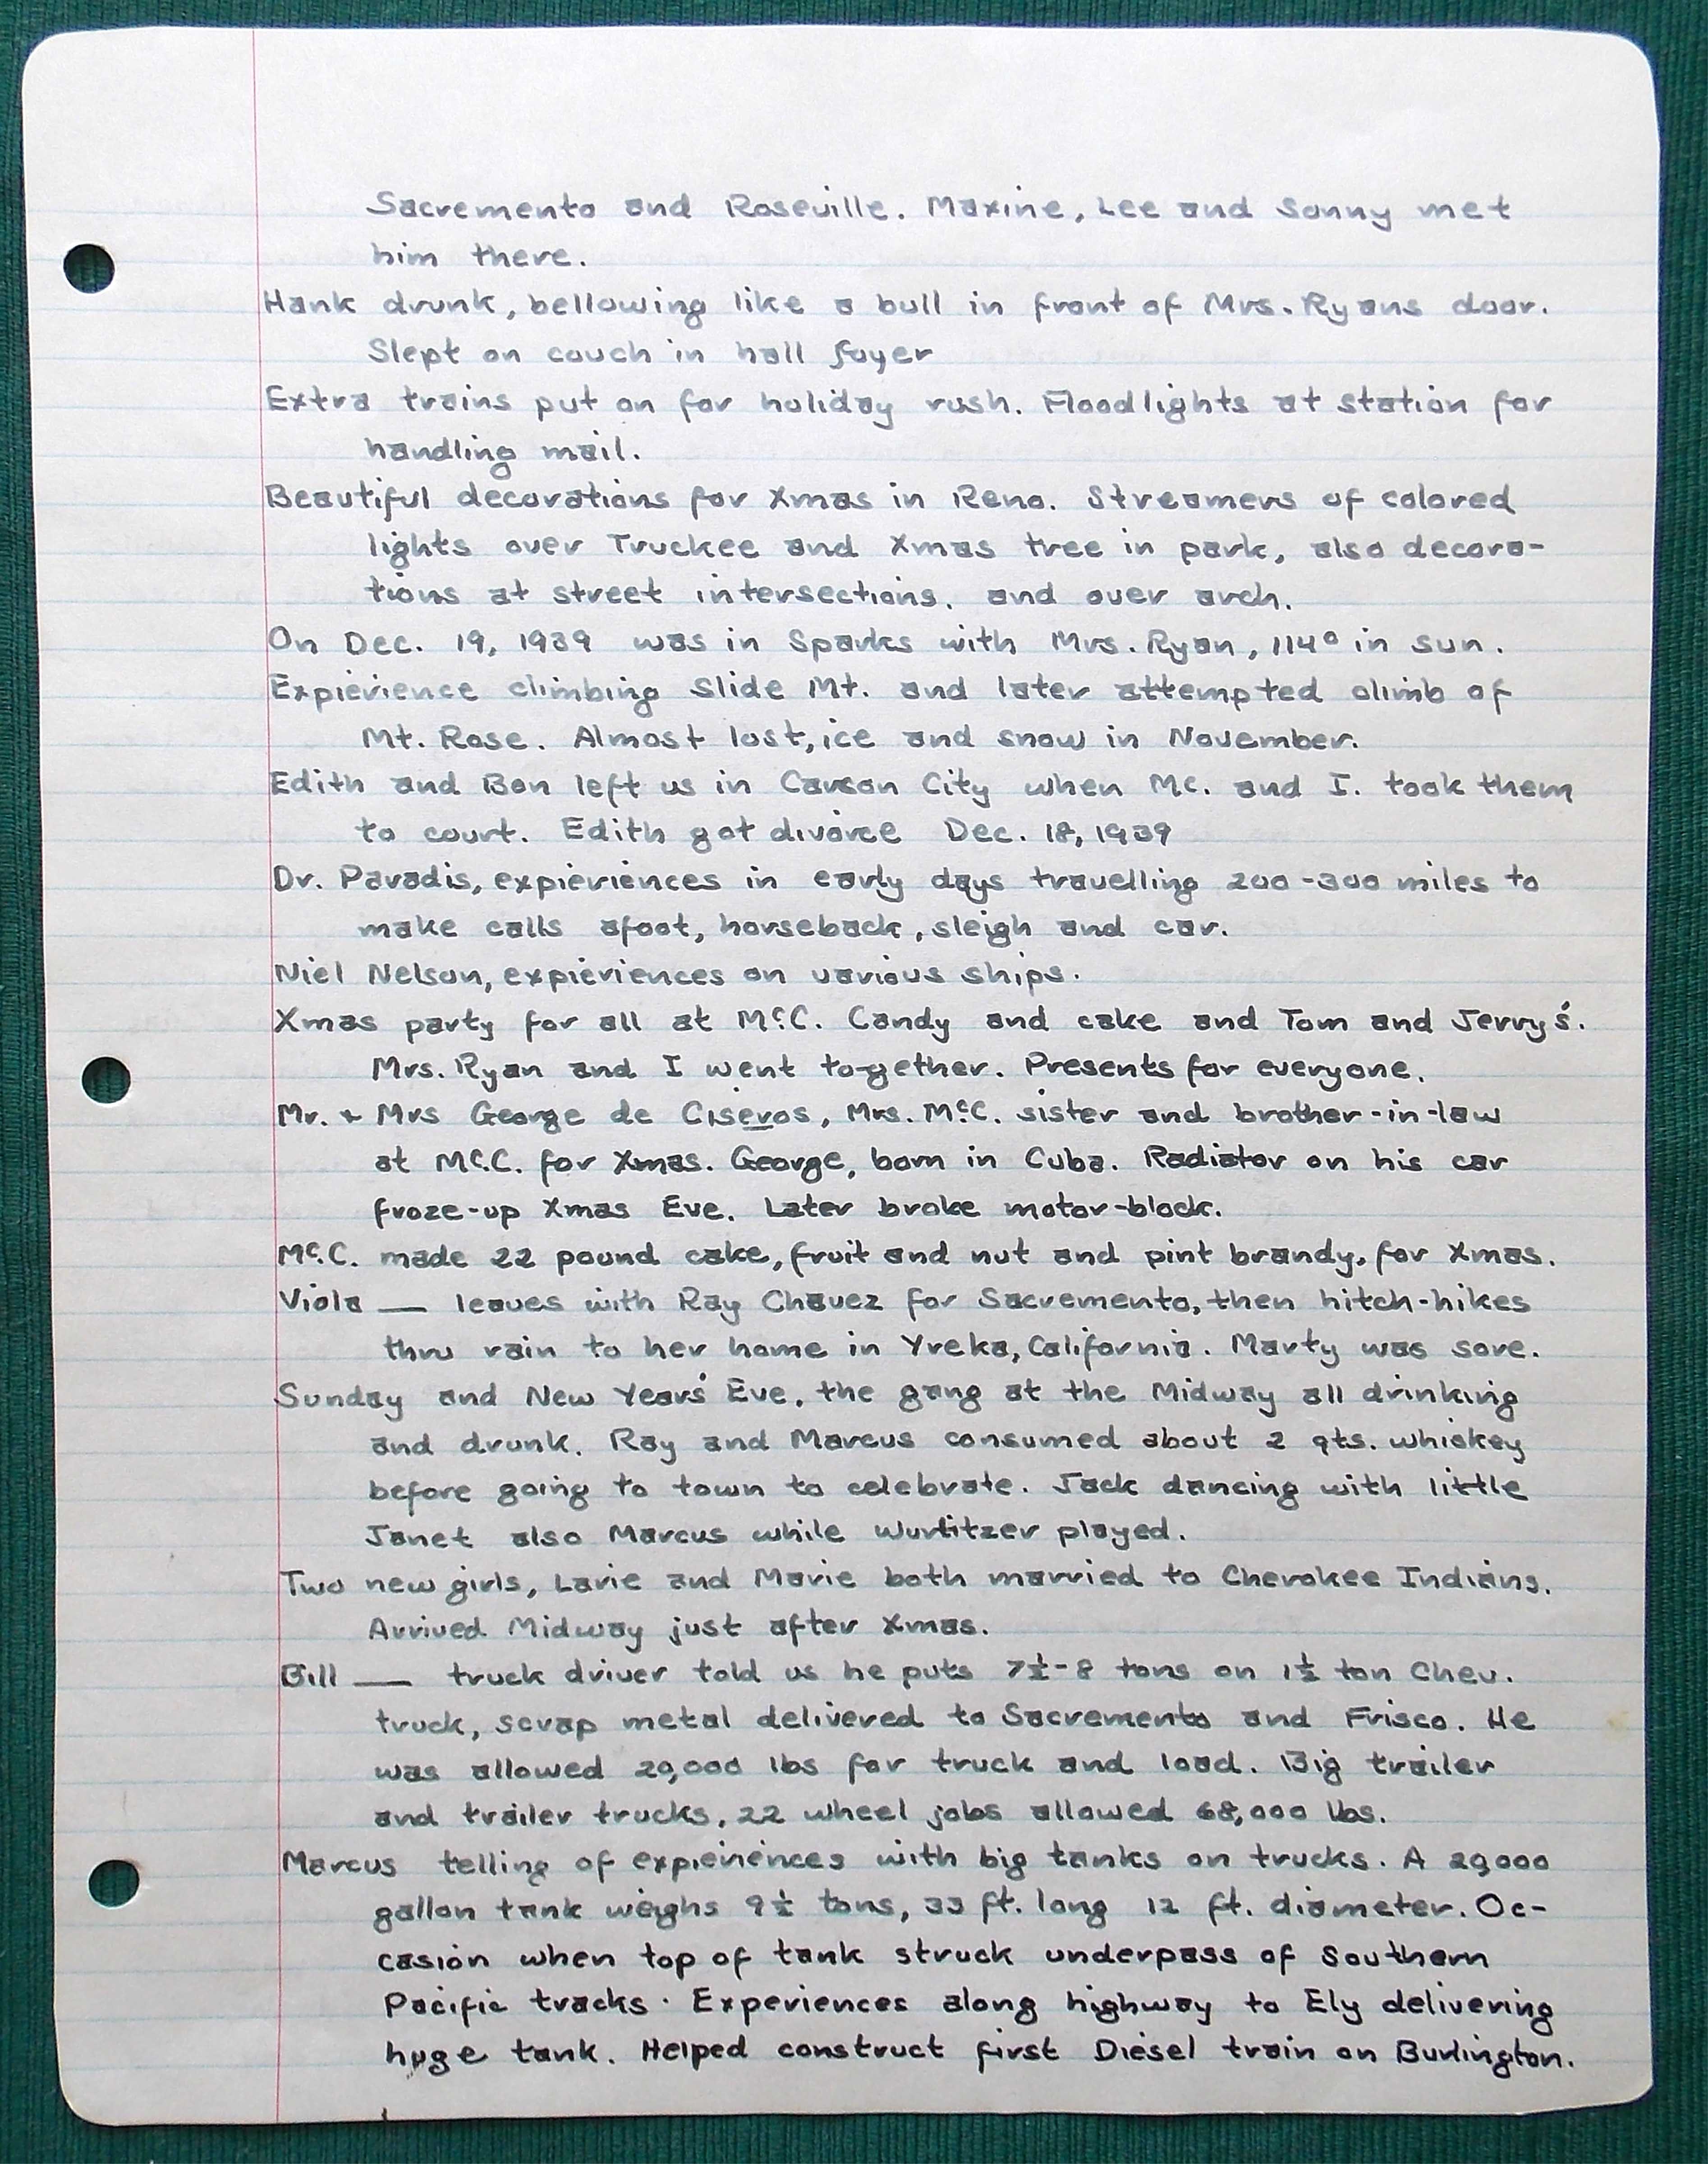 Sacremento and Roseville. Maxine, Lee and Sonny met
him there.
Hank drunk, bellowing like a bull in front of Mrs. Ryans door.
Slept on couch in hall foyer
Extra trains put on for holiday rush. Floodlights at station for
handling mail.
Beautiful decorations for Xmas in Reno. Streamers of colored
lights over Truckee and Xmas tree in park, also decora-
tions at street intersections, and over arch.
On Dec. 19, 1939 was in Sparks with Mrs. Ryan, 114° in sun.
Expierience climbing Slide Mt. and later attempted climb of
Mt. Rose. Almost lost, ice and snow in November.
Edith and Ben left us in Carson City when Mc. and I. took them
to court. Edith got divorce Dec. 18, 1939
Dr. Paradis, expieriences in early days travelling 200-300 miles to
make calls afoot, horseback, sleigh and car.
Niel Nelson, expieriences on various ships.
Xmas party for all at McC. Candy and cake and Tom and Jerry's.
Mrs. Ryan and I went to-gether. Presents for everyone.
Mr. + Mrs George de Ciseros, Mrs. McC. sister and brother-in-law
at McC. for Xmas. George, born in Cuba. Radiator on his car
froze-up Xmas Eve. Later broke motor-block.
McC. made 22 pound cake, fruit and nut and pint brandy, for Xmas.
Viola — leaves with Ray Chavez for Sacremento, then hitch-hikes
thru rain to her home in Yreka, California. Marty was sore.
Sunday and New Years' Eve, the gang at the Midway all drinking
and drunk. Ray and Marcus consumed about 2 qts. whiskey
before going to town to celebrate. Jack dancing with little
Janet also Marcus while Wurlitzer played.
Two new girls, Larie and Marie both married to Cherokee Indians.
Arrived Midway just after Xmas.
Bill — truck driver told us he puts 7½-8 tons on 1½ ton Chev.
truck, scrap metal delivered to Sacremento and Frisco. He
was allowed 20,000 lbs for truck and load. Big trailer
and trailer trucks, 22 wheel jobs allowed 68,000 lbs.
Marcus telling of expieriences with big tanks on trucks. A 20,000
gallon tank weighs 9½ tons, 33 ft. long 12 ft. diameter. Oc-
casion when top of tank struck underpass of Southern
Pacific tracks. Experiences along highway to Ely delivering
huge tank. Helped construct first Diesel train on Burlington.